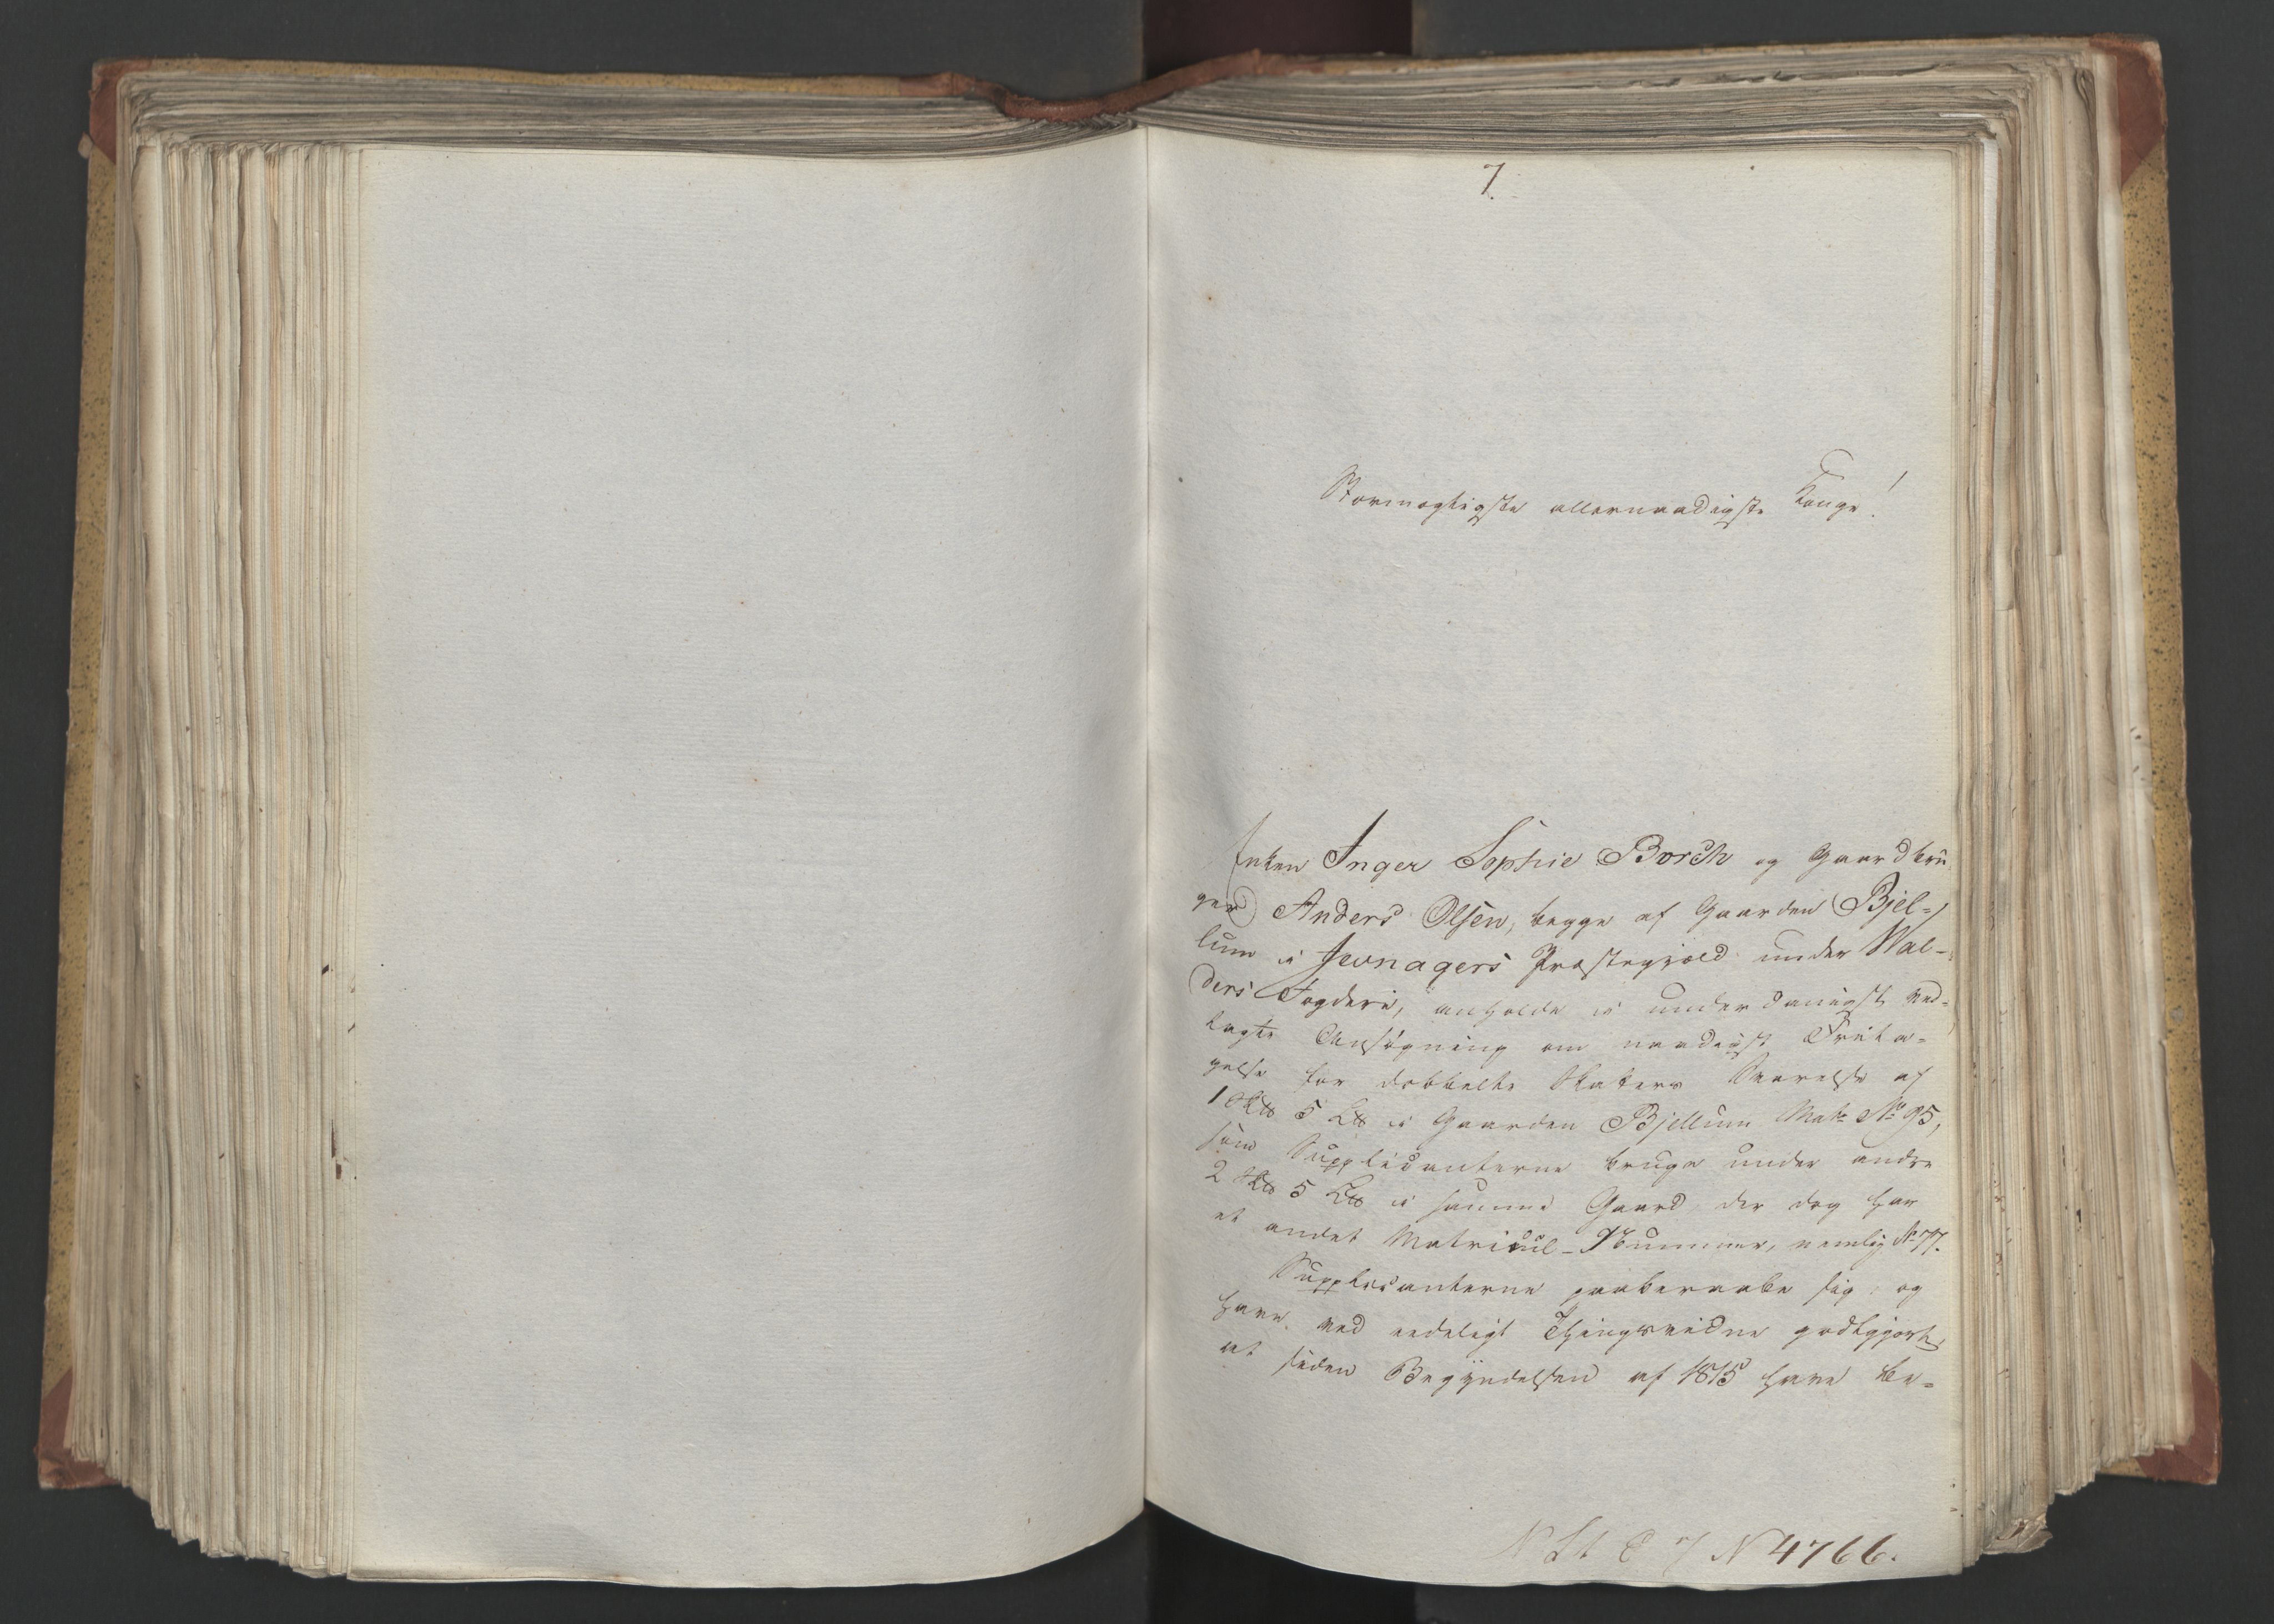 7.
Stormægtigste allernaadigste Konge!
Enken Inger Sophie Borch og Gaardbru
ger Anders Olsen, begge af Gaarden Bjel-
lum i Jevnagers Præstegjæld under Val-
ders Fogderi, anholde i underdanigst ved-
lagte Ansøgning om naadigst Frita-
gelse for dobbelte Skatters Svarelse af
1 Sk℔ 5 L℔ i Gaarden Bjellum Matr. No 95,
som Supplicanterne bruge under andre
2 Sk℔ 5 L℔ i samme Gaard, der dog har
et andet Matricul-Nummer, nemlig No 77.
Supplicanterne paaberaabe sig og
have ved eedeligt Thingsvidne godtgjort,
at siden Begyndelsen af 1815 have be-
N 4766.